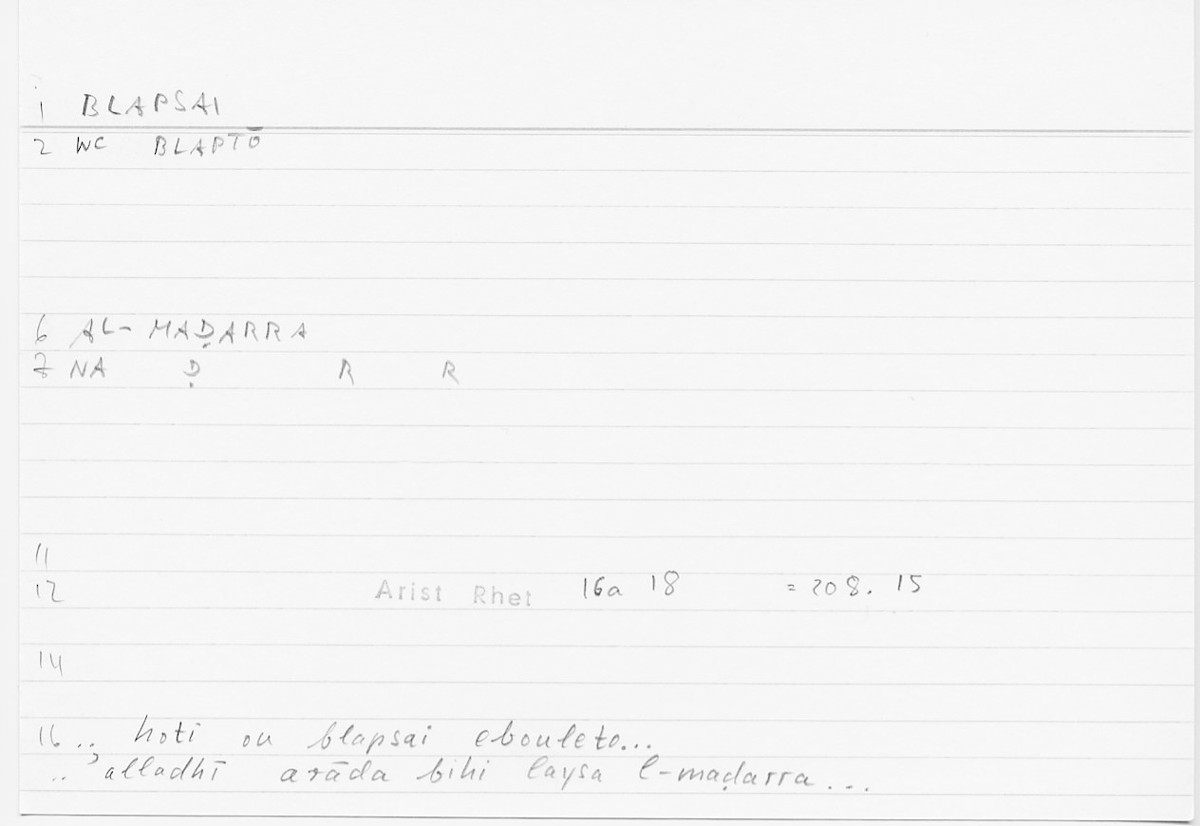 1 BLAPSAI
2 WC BLAPTŌ
6 AL-MAḌARRA
7 NA Ḍ R R
11
12 Arist Rhet 16a 18 = 208. 15
14
16 .. hoti ou blapsai ebouleto...
.. ʾalladhī arāda bihi laysa l-maḍarra...